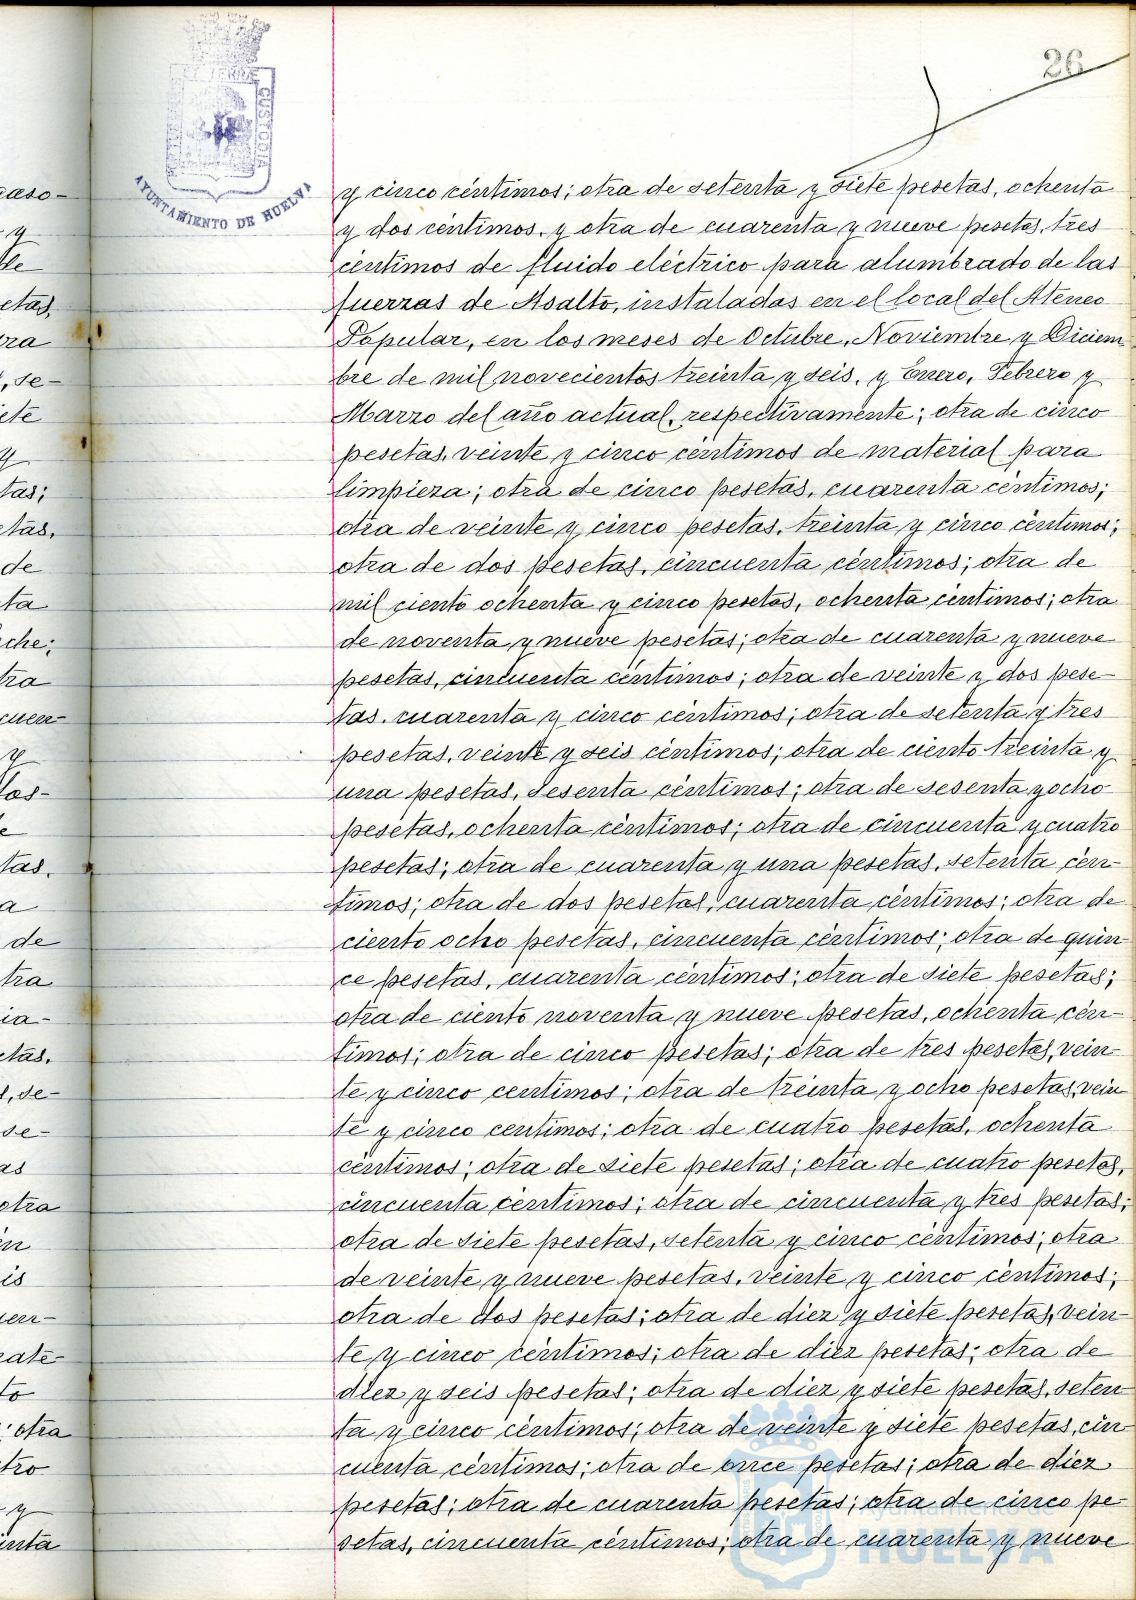 26
AYUNTAMIENTO DE HUELVA
CUSTODIA
y cinco céntimos; otra de setenta y siete pesetas, ochenta
y dos céntimos, y otra de cuarenta y nueve pesetas, tres
céntimos de fluido eléctrico para alumbrado de las
fuerzas de Asalto, instaladas en el local del Ateneo
Popular, en los meses de Octubre, Noviembre y Diciem
bre de mil novecientos treinta y seis, y Enero, Febrero y
Marzo del año actual, respectivamente; otra de cinco
pesetas, veinte y cinco céntimos de material para
limpieza; otra de cinco pesetas, cuarenta céntimos;
otra de veinte y cinco pesetas, treinta y cinco céntimos;
otra de dos pesetas, cincuenta céntimos; otra de
mil ciento ochenta y cinco pesetas, ochenta céntimos; otra
de noventa y nueve pesetas; otra de cuarenta y nueve
pesetas, cincuenta céntimos; otra de veinte y dos pese-
tas, cuarenta y cinco céntimos; otra de setenta y tres
pesetas, veinte y seis céntimos; otra de ciento treinta y
una pesetas, sesenta céntimos; otra de sesenta y ocho
pesetas, ochenta céntimos; otra de cincuenta y cuatro
pesetas; otra de cuarenta y una pesetas, setenta cén-
timos; otra de dos pesetas, cuarenta céntimos; otra de
ciento ocho pesetas, cincuenta céntimos; otra de quin-
ce pesetas, cuarenta céntimos; otra de siete pesetas;
otra de ciento noventa y nueve pesetas, ochenta cén-
timos; otra de cinco pesetas; otra de tres pesetas, vein-
te y cinco centimos; otra de treinta y ocho pesetas, vein
te y cinco centimos; otra de cuatro pesetas, ochenta
céntimos; otra de siete pesetas; otra de cuatro pesetas,
cincuenta céntimos; otra de cincuenta y tres pesetas;
otra de siete pesetas, setenta y cinco céntimos; otra
de veinte y nueve pesetas, veinte y cinco céntimos;
otra de dos pesetas; otra de diez y siete pesetas, vein-
te y cinco céntimos; otra de diez pesetas; otra de
diez y seis pesetas; otra de diez y siete pesetas, seten
ta y cinco céntimos; otra de veinte y siete pesetas, cin
cuenta céntimos; otra de once pesetas; otra de diez
pesetas; otra de cuarenta pesetas; otra de cinco pe
setas, cincuenta céntimos; otra de cuarenta y nueve
Ayuntamiento de
HUELVA